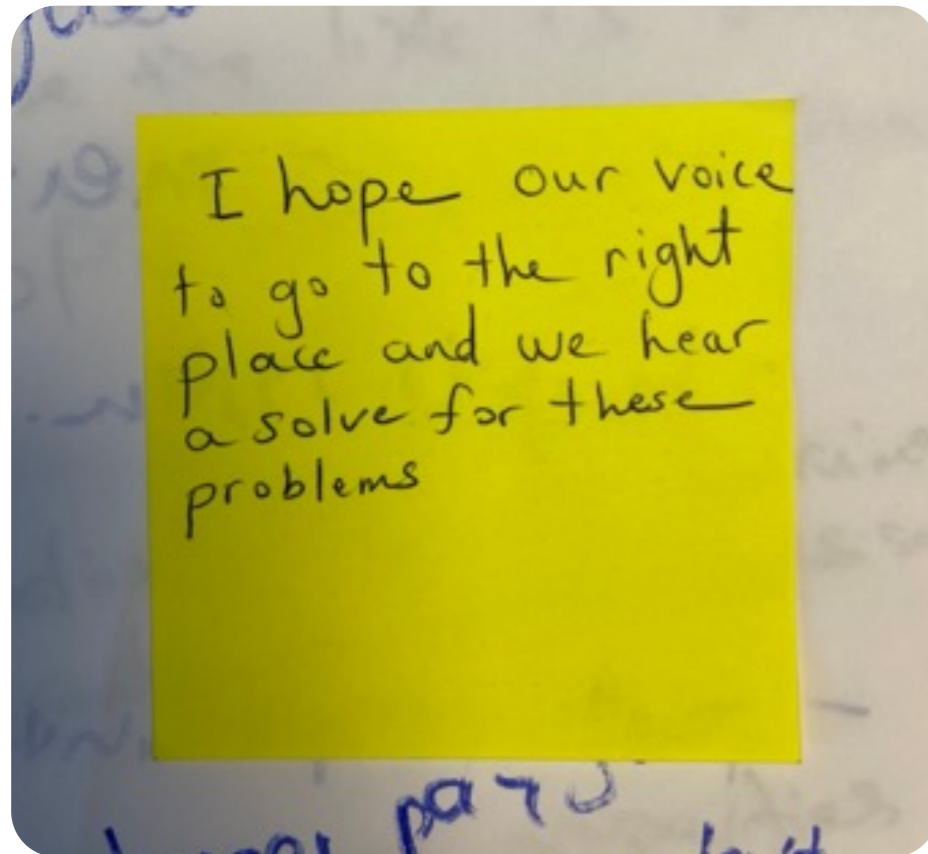 I hope our voice
to go to the right
place and we hear
a solve for these
problems